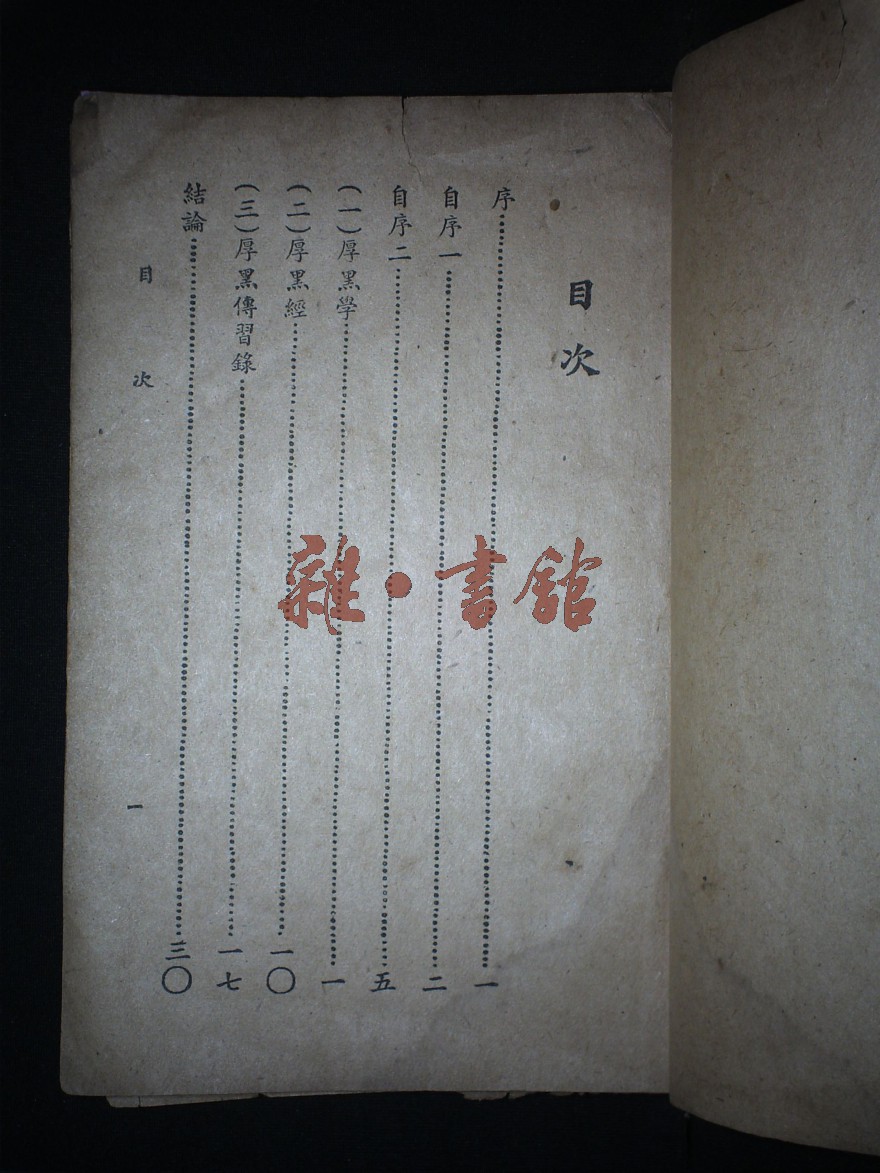 目次
序…………一
自序一…………二
自序二…………五
(一)厚黑學…………一
(二)厚黑經…………一〇
(三)厚黑傳習錄…………一七
結論…………三〇
目次 一
雜·書館